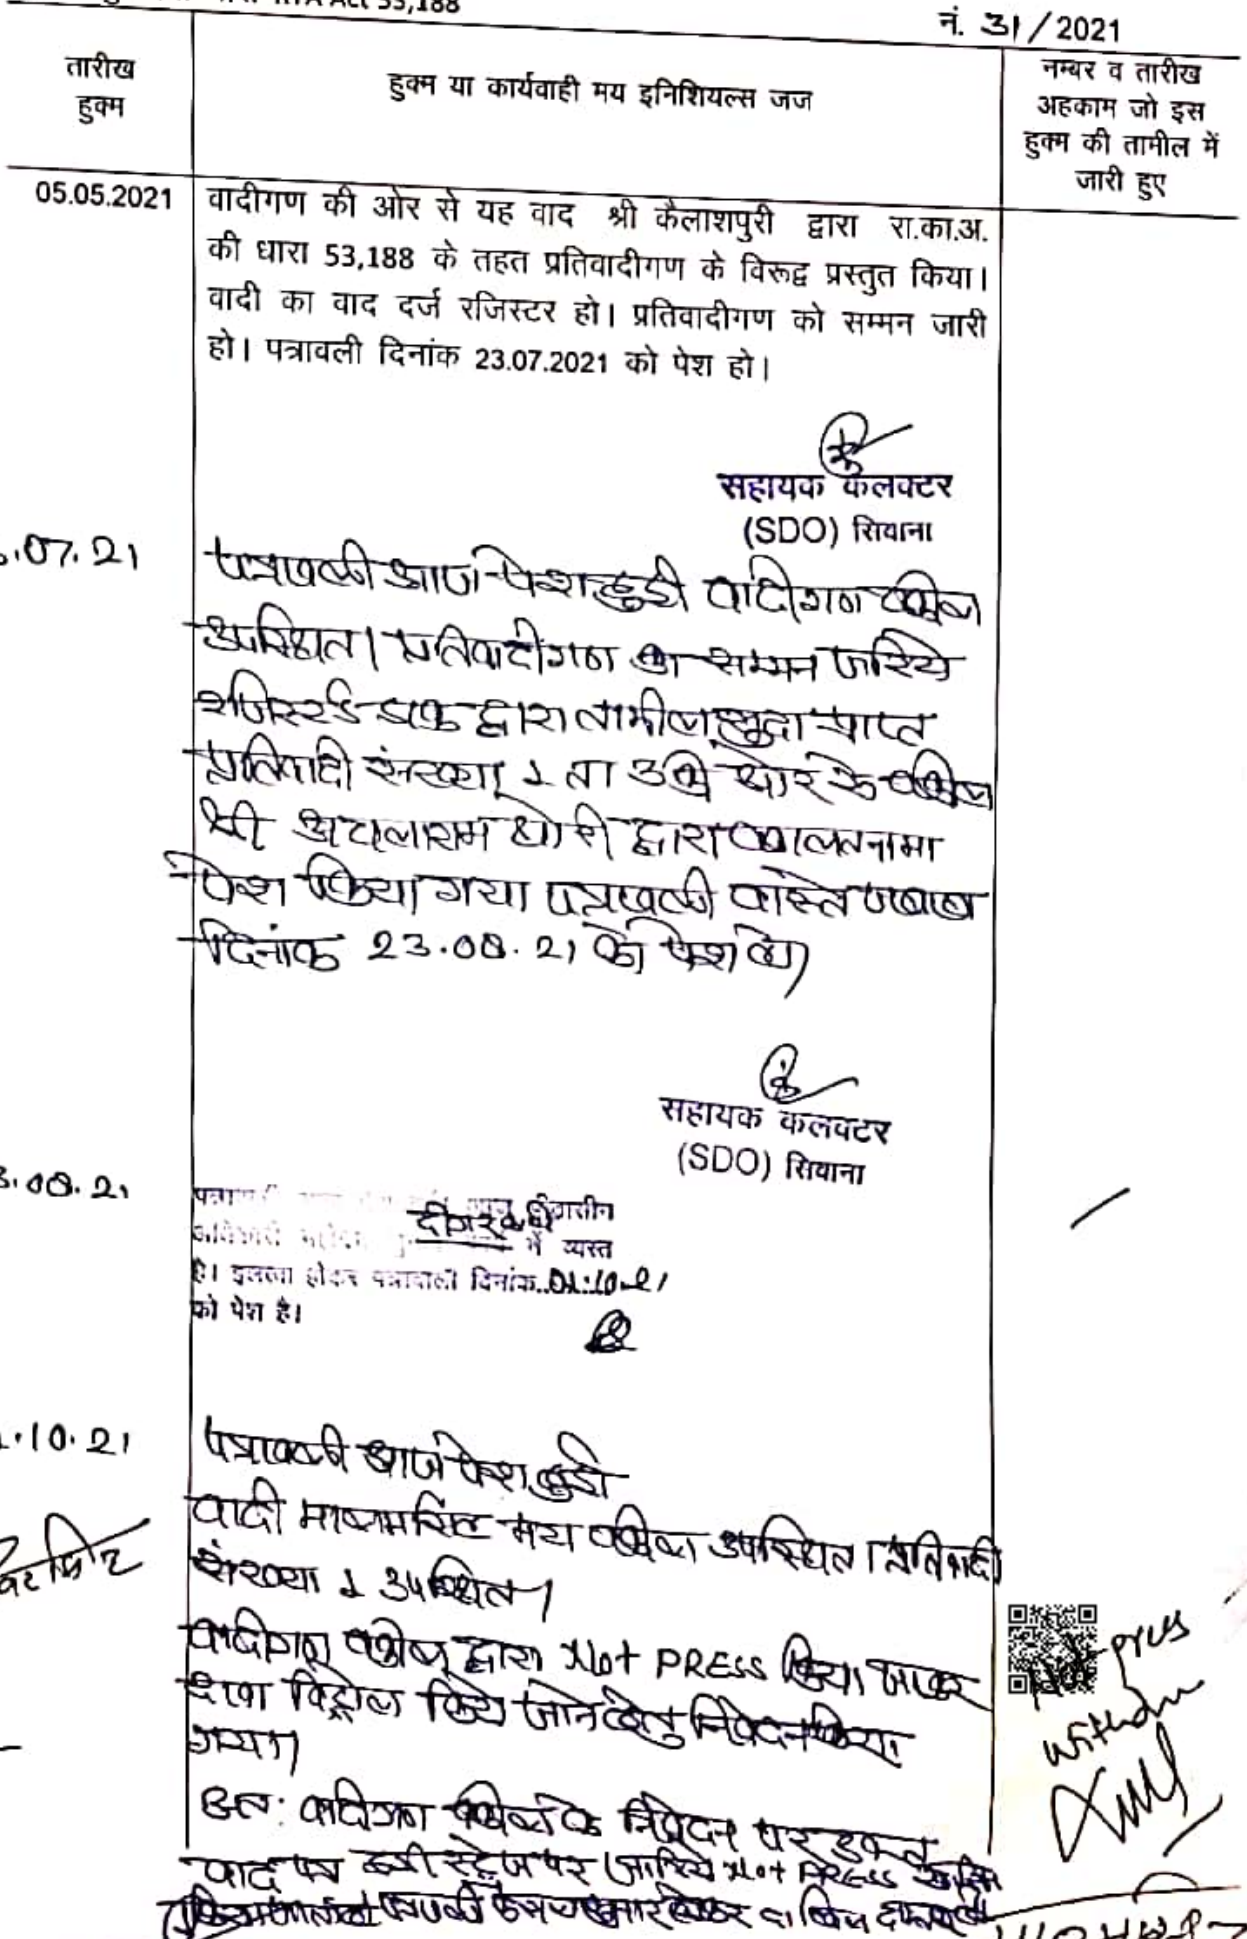 RTA Act 53,188
नं. 31/2021
तारीख
हुक्म
हुक्म या कार्यवाही मय इनिशियल्स जज
नम्बर व तारीख
अहकाम जो इस
हुक्म की तामील में
जारी हुए
05.05.2021
वादीगण की ओर से यह वाद श्री कैलाशपुरी द्वारा रा.का.अ.
की धारा 53,188 के तहत प्रतिवादीगण के विरूद्व प्रस्तुत किया।
वादी का वाद दर्ज रजिस्टर हो। प्रतिवादीगण को सम्मन जारी
हो। पत्रावली दिनांक 23.07.2021 को पेश हो।
सहायक कलक्टर
(SDO) सिवाना
.07.21
पत्रावली आज पेश हुई वादीगण वकील
उपस्थित। प्रतिवादीगण का सम्मन जरिये
रजिस्टर्ड डाक द्वारा तामील शुदा प्राप्त
प्रतिवादी संख्या 1 ता 3 की ओर से वकील
श्री अचलाराम थोरी द्वारा वकालतनामा
पेश किया गया पत्रावली वास्ते जवाब
दिनांक 23.08.21 को पेश हो।
सहायक कलक्टर
(SDO) सिवाना
3.08.21
दीगर कार्य
में व्यस्त
है। इतला होकर पत्रावली दिनांक..01.10.21
को पेश है।
1.10.21
पत्रावली आज पेश हुई
वादी मय वकील उपस्थित। प्रतिवादी
संख्या 1 उपस्थित।
वादीगण वकील द्वारा Not PRESS किया जाकर
दावा विड्रोल किये जाने हेतु निवेदन किया
गया।
अत: वादीगण वकील के निवेदन पर उक्त
वाद पत्र इसी स्टेज पर जरिये Not PRESS खारिज
Not press
withdraw